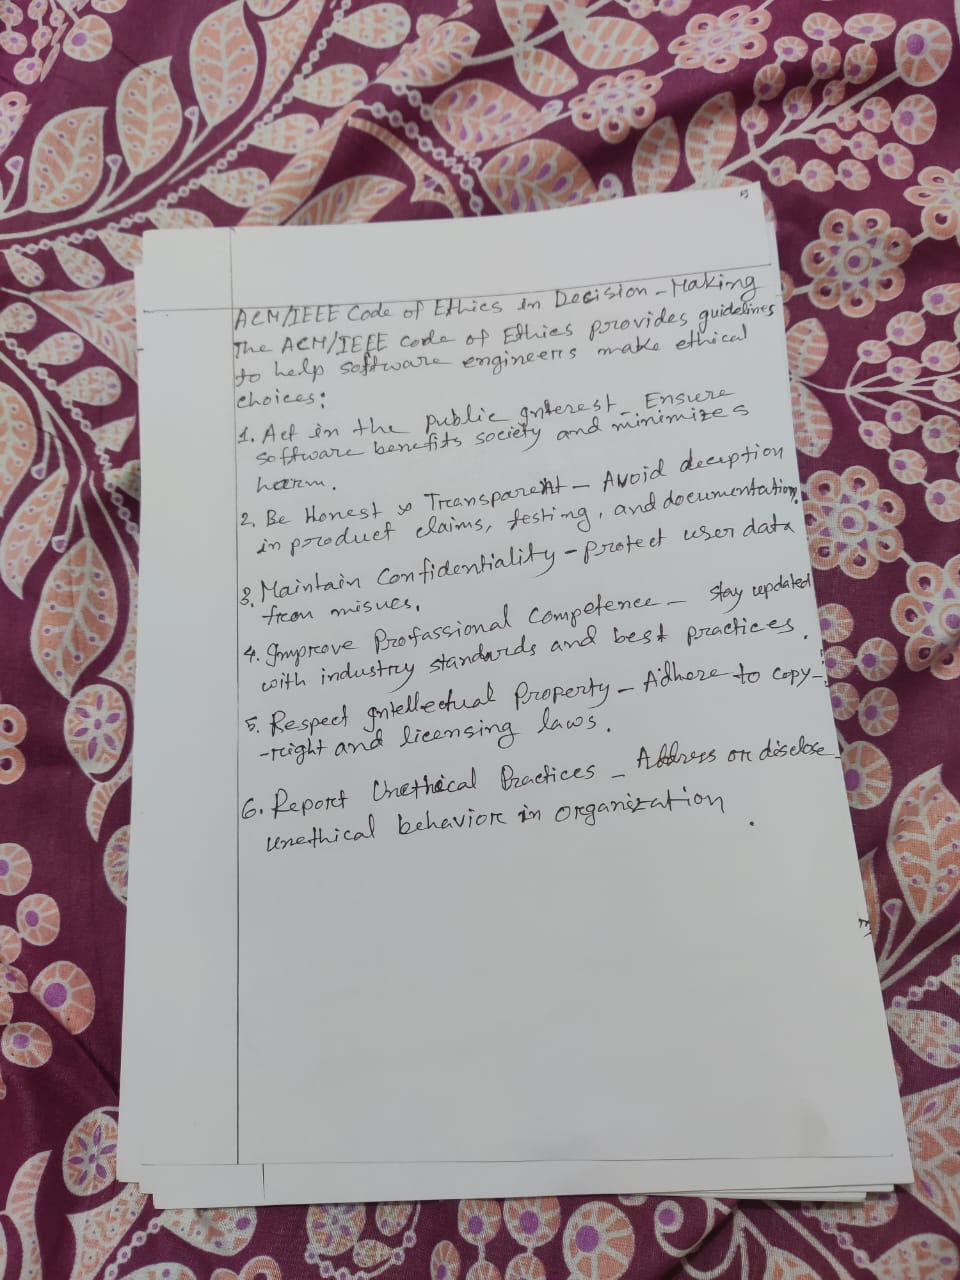 5
ACM/IEEE Code of Ethics in Decision-Making
The ACM/IEEE code of Ethics provides guidelines
to help software engineers make ethical
choices:
1. Act in the public interest - Ensure
software benefits society and minimizes
harm.
2. Be Honest & Transparent - Avoid deception
in product claims, testing, and documentation.
3. Maintain Confidentiality - protect user data
from misues.
4. Improve Profassional Competence - stay updated
with industry standards and best practices.
5. Respect Intellectual Property - Adhere to copy-
-right and licensing laws.
6. Report Unethical Practices - Address or disclose
unethical behavior in organization.